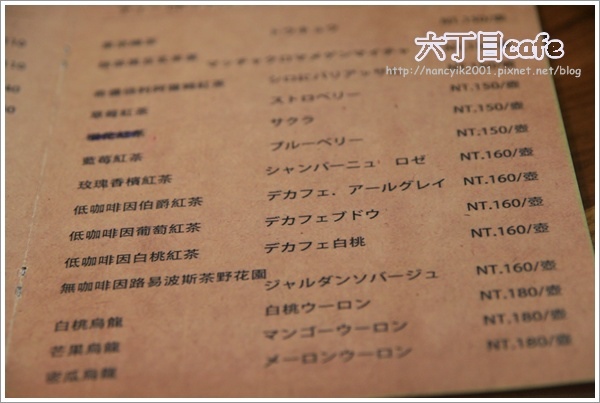 六丁目cafe
http://nancyik2001.pixnet.net/blog
NT.160/壺
NT.150/壺
草莓紅茶 ストロベリー NT.150/壺
サクラ NT.150/壺
藍莓紅茶 ブルーベリー NT.160/壺
玫瑰香檳紅茶 シャンパーニュ ロゼ NT.160/壺
低咖啡因伯爵紅茶 デカフェ、アールグレイ NT.160/壺
低咖啡因葡萄紅茶 デカフェブドウ NT.160/壺
低咖啡因白桃紅茶 デカフェ白桃 NT.160/壺
無咖啡因路易波斯茶野花園 ジャルダンソバージュ NT.160/壺
白桃烏龍 白桃ウーロン NT.180/壺
芒果烏龍 マンゴーウーロン NT.180/壺
密瓜烏龍 メーロンウーロン NT.180/壺